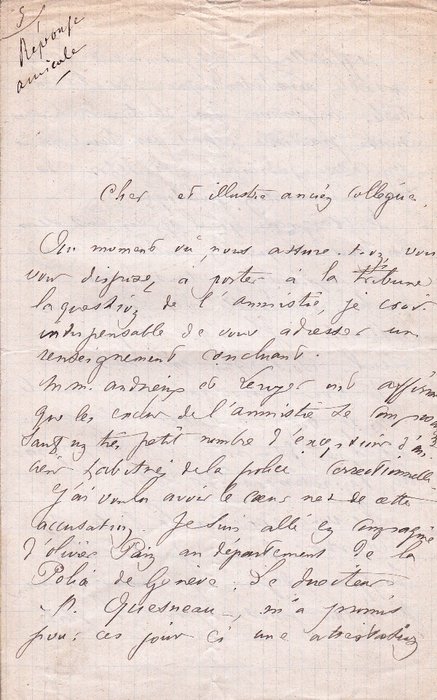 Réponse
amicale
Cher et illustre ancien collègue,
Au moment où, nous assure-t-on, vous
vous disposez à porter à la tribune
la question de l'amnistie, je crois
indispensable de vous adresser un
renseignement concluant.
MM. Andrieux et ont affirmé
que les exclus de l'amnistie se composaient
sauf un très petit nombre d'exceptions d'an
ciens de la police correctionnelle
J'ai voulu avoir le cœur net de cette
accusation. Je suis allé en compagnie
d'Olivier Pain au département de la
Police de Genève. Le directeur
M. Quesneau, m'a promis
pour ces jour ci une attestation